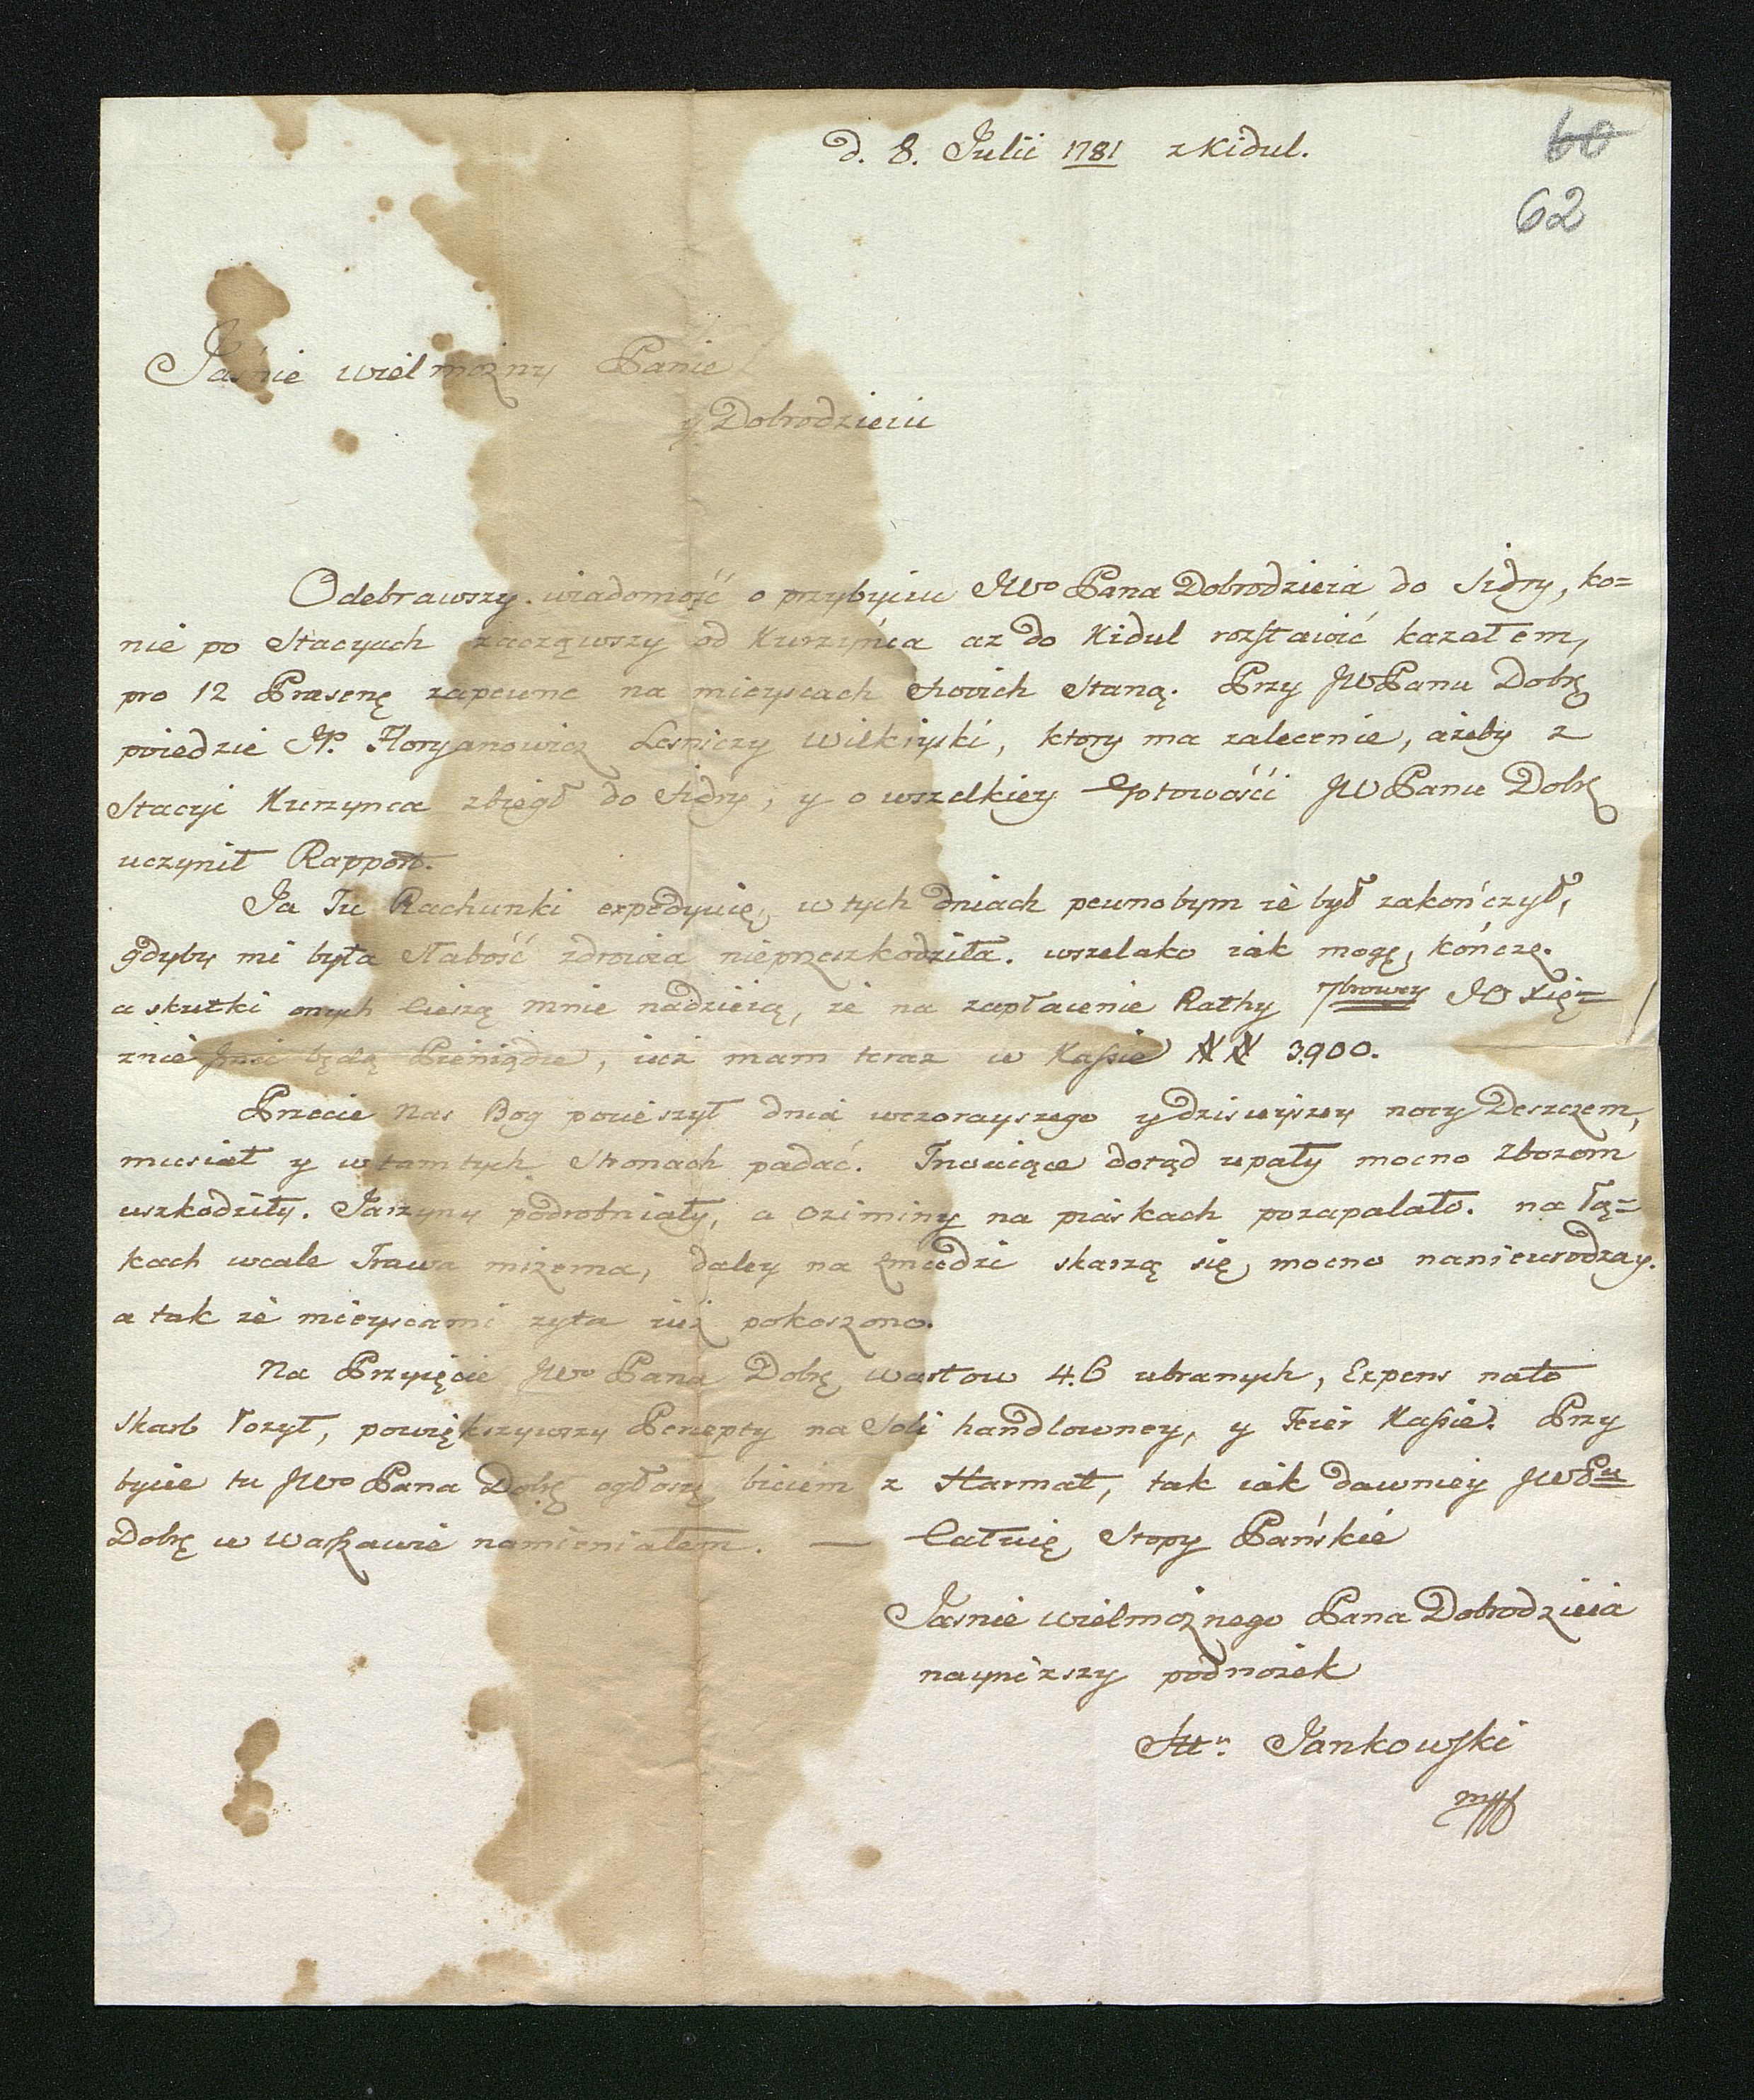 d. 8. Julii 1781 z Kidul.
60
62
Jaśnie wielmożny Panie
y Dobrodzieiu
Odebrawszy wiadomość o przybyciu JWo Pana Dobrodzieia do Sidry, ko=
nie po Stacyach zacząwszy od Kurzyńca az do Kidul rozstawić kazałem,
pro 12 Præsenę zapewne na mieyscach swoich Staną. Przy JWPanu Dobrę
poiedzie JP. Floryanowicz Lesniczy Wilkiyski, ktory ma zalecenie, ażeby z
Stacyi Kurzynca zbiegł do Sidry, y o wszelkiey gotowości JWPanu Dobrę
uczynił Rapport.
Ja Tu Rachunki expedyuię, w tych dniach pewnobym ie był zakończył,
gdyby mi była słabość zdrowia nieprzeszkodziła. wszelako iak mogę, kończę.
a skutki onych Cieszą mnie nadzieią, że na zapłacenie Rathy 7browey JO Xię=
znie Jmci będą Pieniądze, iuż mam teraz w Kassie 3,900.
Przecie Nas Bog pocieszył dnia wczorayszego y dzisieyszey nocy Deszczem,
musiał y w tamtych Stronach padać. Trwaiące dotąd upały mocno Zbozom
uszkodziły. Jarzyny podrobniały, a oziminy na piaskach pozapalało. na łą=
kach wcale Trawy niżema, daley na Zmudzi skarzą się mocno nanieurodzay.
a tak że mieyscami zyta iuż pokoszono.
Na Przyięcie JWo Pana Dobrę wastow 46 ubranych, Expens nato
Skarb łożył, powiększywszy Percepty na Soli handlowney, y Teier Kassie. Przy
bycie tu JWo Pana Dobrę ogłoszę biciem z Harmat, tak iak dawniey JWPu
Dobrę w Warszawie namieniałem. — Całuię Stopy Pańskie
Jasnie wielmożnego Pana Dobrodzieia
naynizszy podnożek
Jankowski
mpp